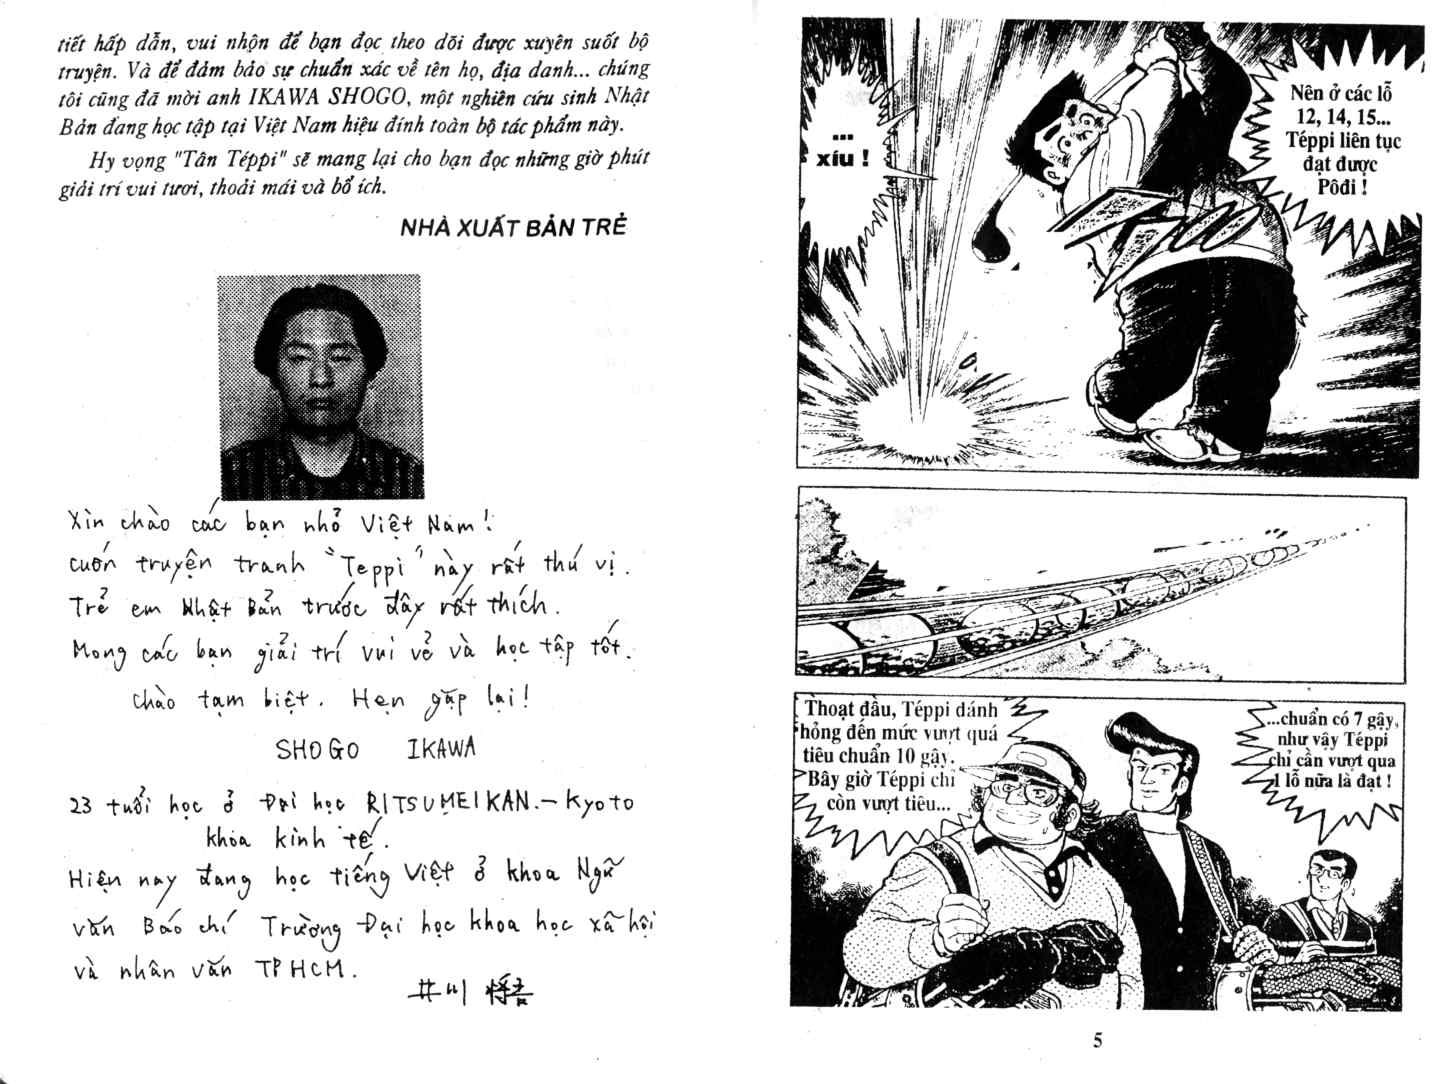 tiết hấp dẫn, vui nhộn để bạn đọc theo dõi được xuyên suốt bộ
truyện. Và để đảm bảo sự chuẩn xác về tên họ, địa danh... chúng
tôi cũng đã mời anh IKAWA SHOGO, một nghiên cứu sinh Nhật
Bản đang học tập tại Việt Nam hiệu đính toàn bộ tác phẩm này.
Hy vọng "Tân Téppi" sẽ mang lại cho bạn đọc những giờ phút
giải trí vui tươi, thoải mái và bổ ích.
NHÀ XUẤT BẢN TRẺ
Xin chào các bạn nhỏ Việt Nam!
cuốn truyện tranh "Teppi" này rất thú vị.
Trẻ em Nhật Bản trước đây rất thích.
Mong các bạn giải trí vui vẻ và học tập tốt.
chào tạm biệt. Hẹn gặp lại!
SHOGO IKAWA
23 tuổi học ở Đại học RITSUMEIKAN.- Kyoto
khoa kinh tế.
Hiện nay đang học tiếng Việt ở khoa Ngữ
văn Báo chí Trường Đại học khoa học xã hội
và nhân văn TP HCM.
井川 将吾
...
xíu !
Nên ở các lỗ
12, 14, 15...
Téppi liên tục
đạt được
Pôđi !
Thoạt đầu, Téppi đánh
hỏng đến mức vượt quá
tiêu chuẩn 10 gậy.
Bây giờ Téppi chỉ
còn vượt tiêu...
...chuẩn có 7 gậy,
như vậy Téppi
chỉ cần vượt qua
1 lỗ nữa là đạt !
5